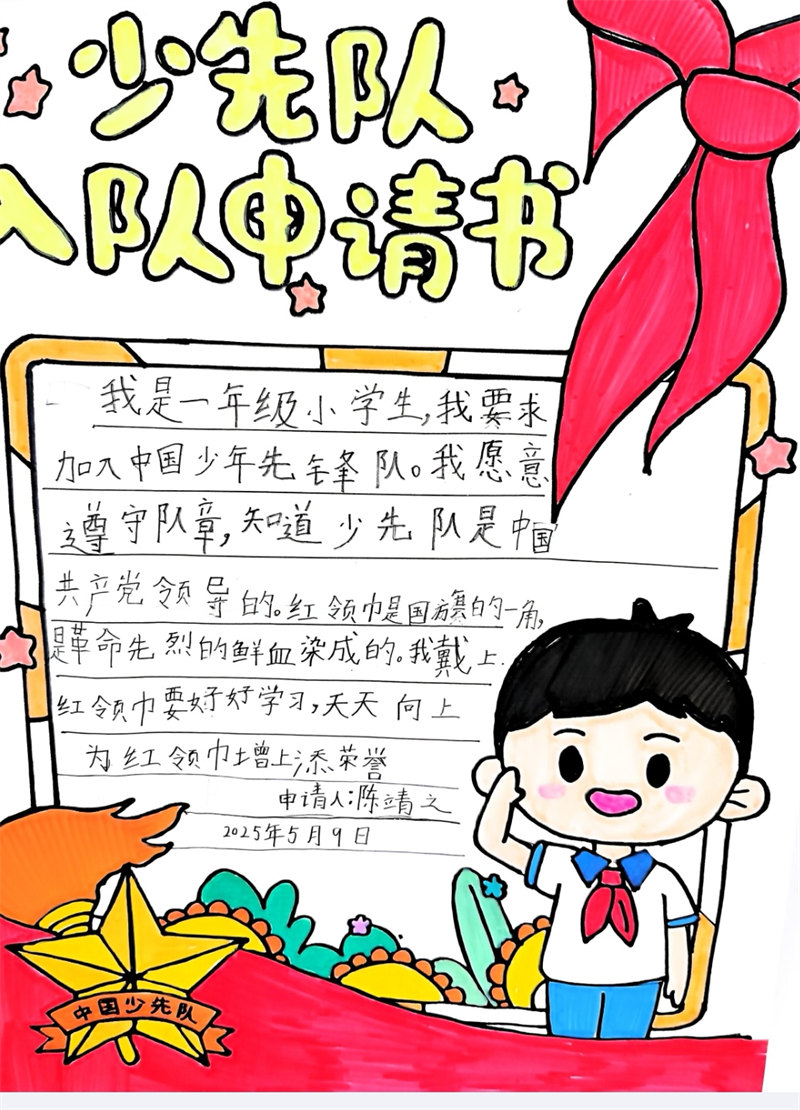 少先队
入队申请书
我是一年级小学生,我要求
加入中国少年先锋队。我愿意
遵守队章,知道少先队是中国
共产党领导的。红领巾是国旗的一角,
是革命先烈的鲜血染成的。我戴上
红领巾要好好学习,天天向上
为红领巾增上添荣誉
申请人:陈靖文
2025年5月9日
中国少先队